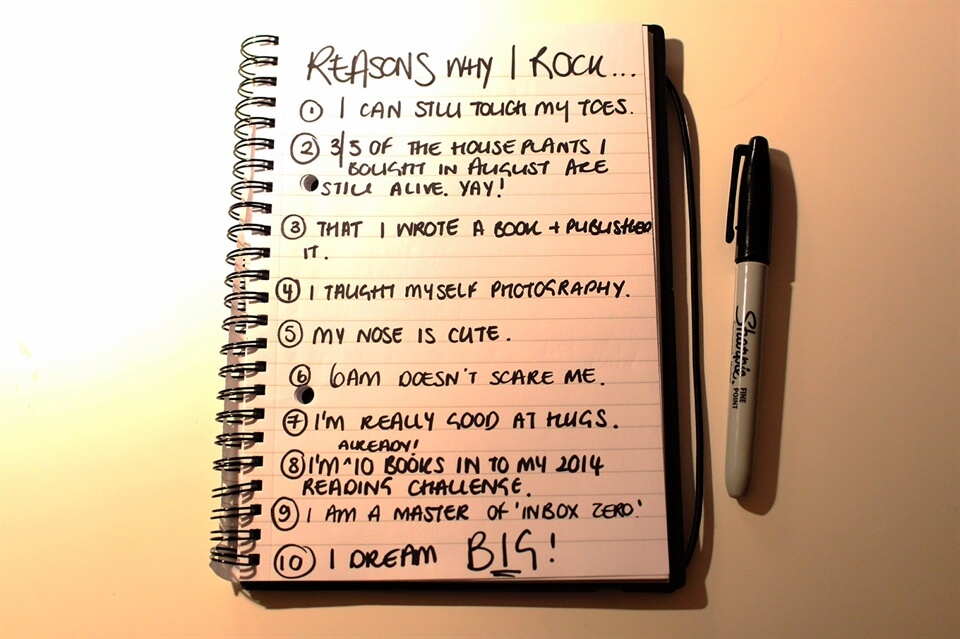 REASONS WHY I ROCK...
① I CAN STILL TOUCH MY TOES.
② 3/5 OF THE HOUSEPLANTS I
BOUGHT IN AUGUST ARE
STILL ALIVE. YAY!
③ THAT I WROTE A BOOK + PUBLISHED
IT.
④ I TAUGHT MYSELF PHOTOGRAPHY.
⑤ MY NOSE IS CUTE.
⑥ 6AM DOESN'T SCARE ME.
⑦ I'M REALLY GOOD AT HUGS.
ALREADY!
⑧ I'M ^ 10 BOOKS IN TO MY 2014
READING CHALLENGE.
⑨ I AM A MASTER OF 'INBOX ZERO.'
⑩ I DREAM BIG!
Sharpie
FINE
POINT